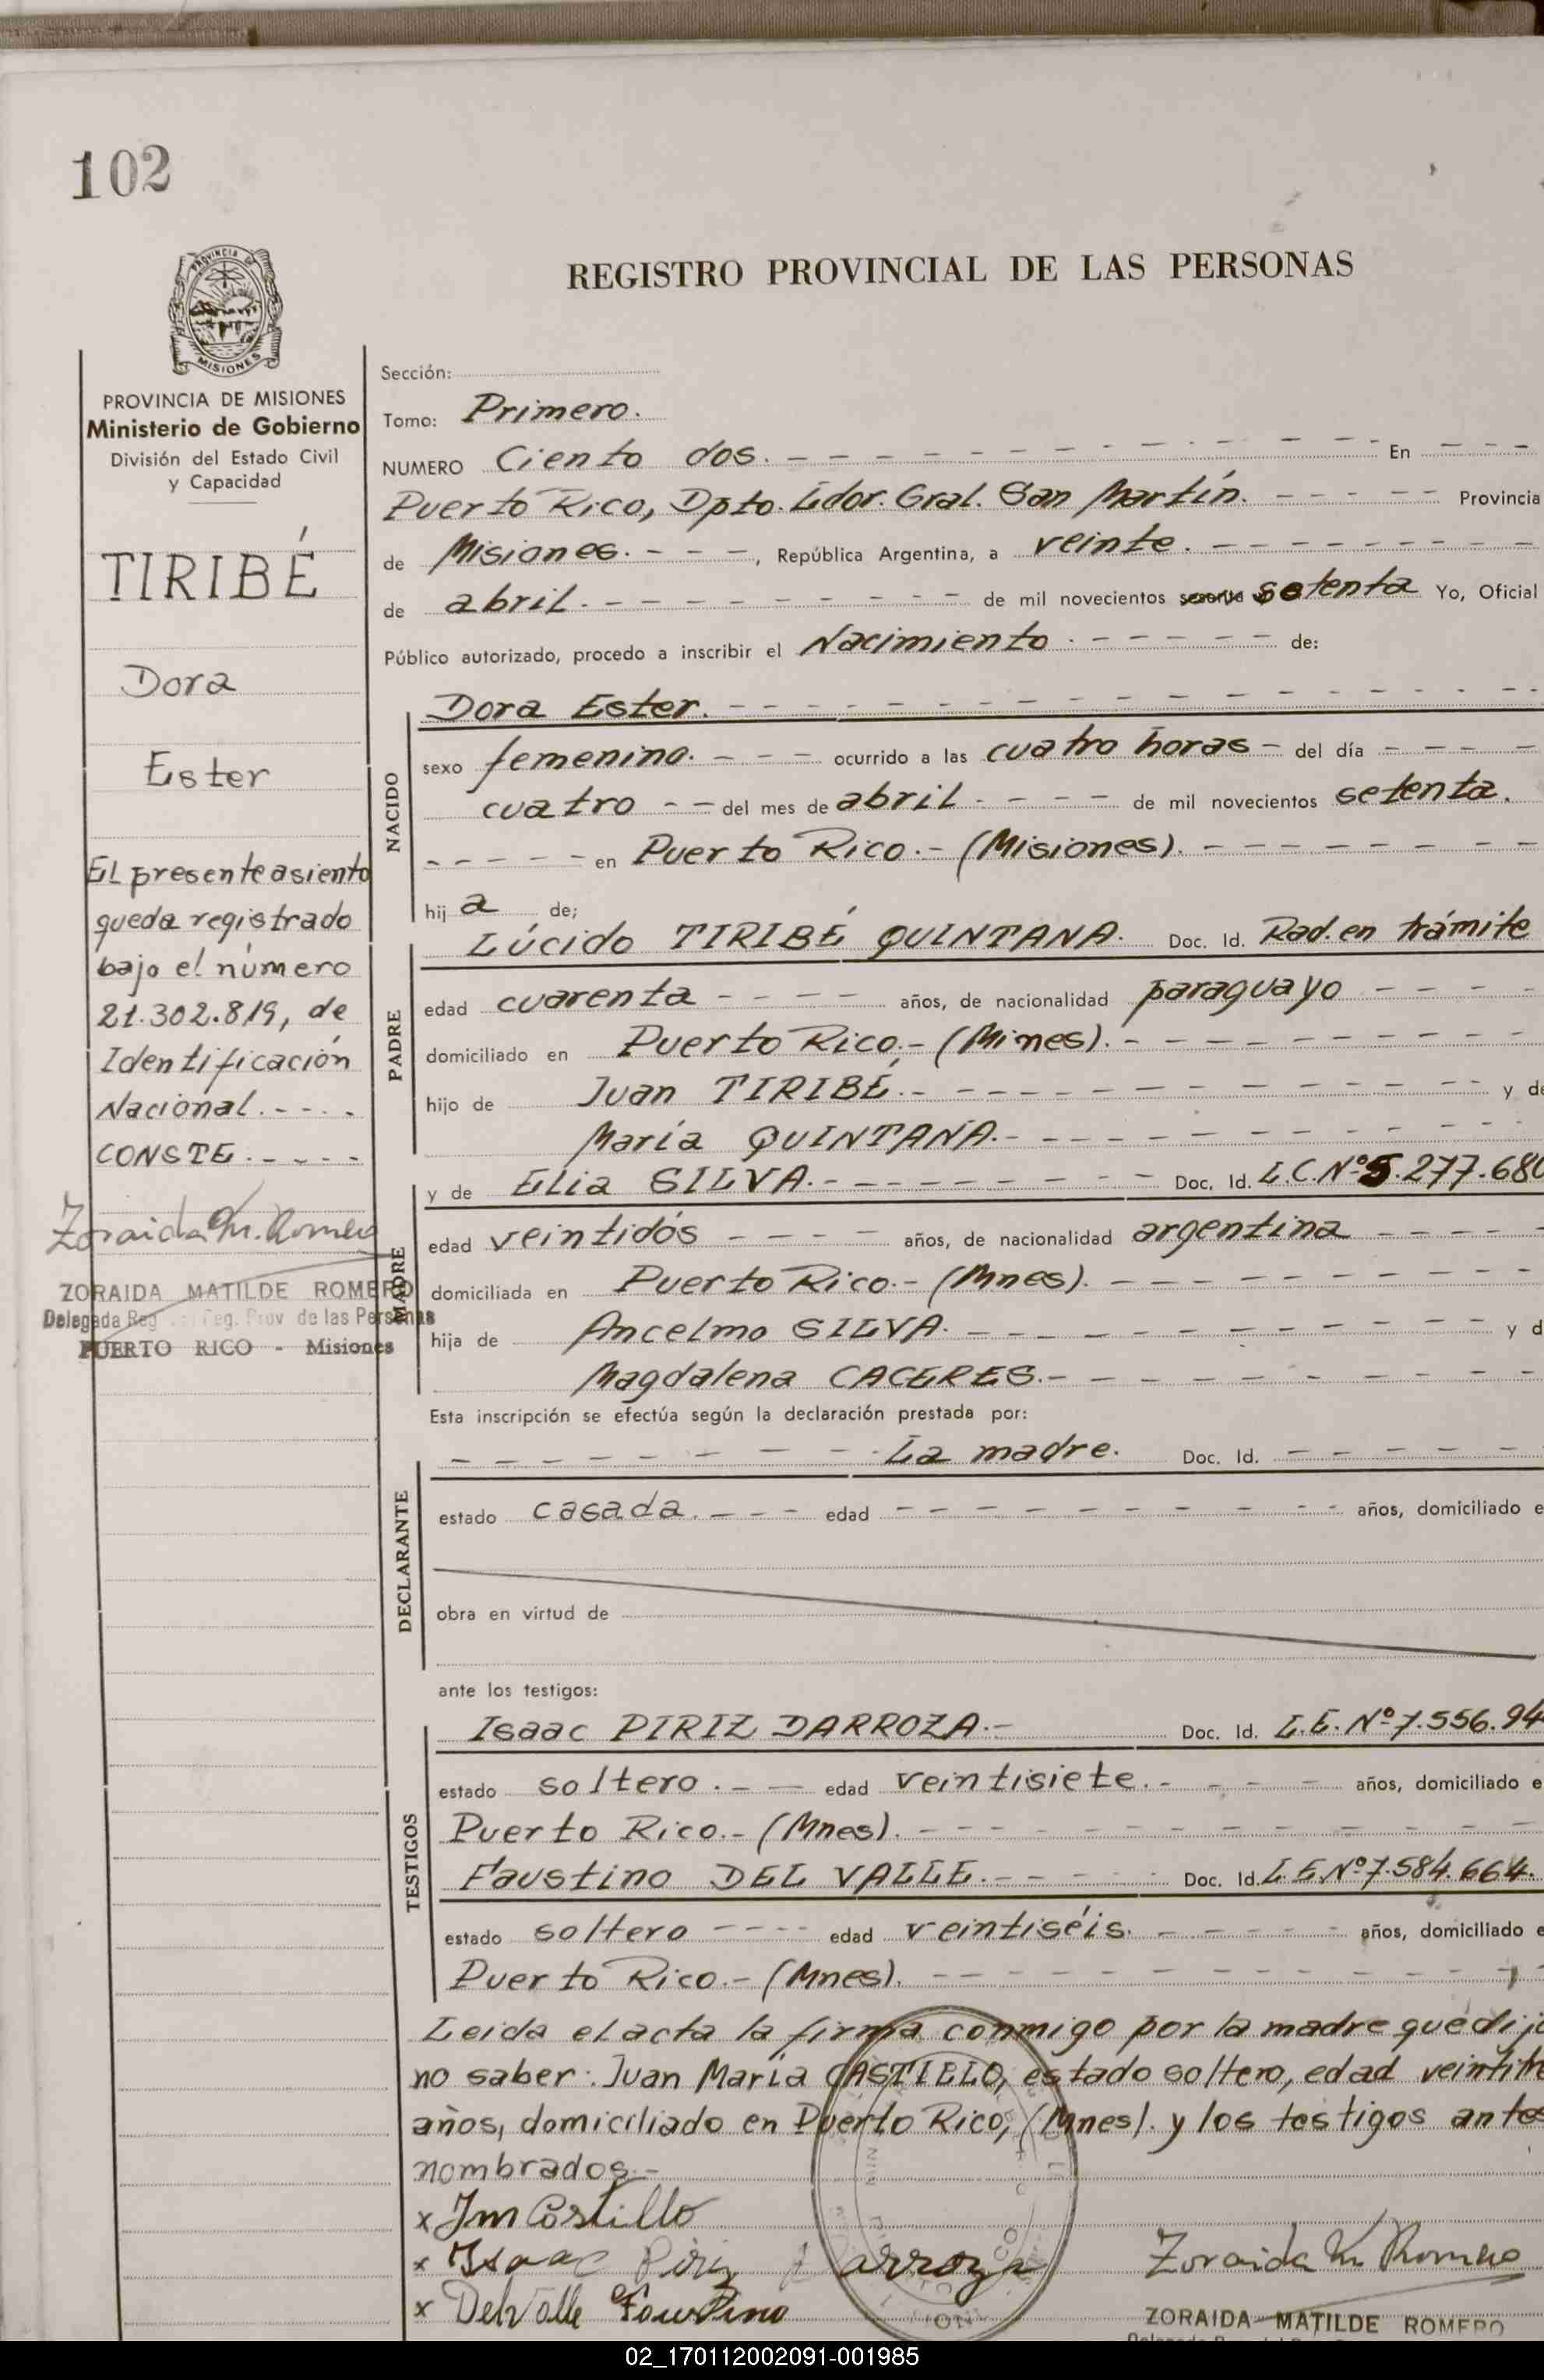 102
REGISTRO PROVINCIAL DE LAS PERSONAS
PROVINCIA DE MISIONES
Ministerio de Gobierno
División del Estado Civil
y Capacidad
TIRIBÉ
Dora
Ester
El presente asiento
queda registrado
bajo el número
21.302.819, de
Identificación
Nacional.----
CONSTE.----
Zoraida M. Romero
ZORAIDA MATILDE ROMERO
Delegada Reg. Prov de las Personas
PUERTO RICO - Misiones
Sección:
Tomo: Primero.
NUMERO Ciento dos. En
Puerto Rico, Dpto. Ldor. Gral. San Martín. Provincia
de Misiones. , República Argentina, a veinte.
de abril. de mil novecientos setenta Yo, Oficial
Público autorizado, procedo a inscribir el Nacimiento de:
NACIDO
Dora Ester.
sexo femenino. ocurrido a las cuatro horas del día
cuatro del mes de abril de mil novecientos setenta.
en Puerto Rico.- (Misiones).
hij a de;
PADRE
Lúcido TIRIBÉ QUINTANA. Doc. Id. Rad. en trámite
edad cuarenta años, de nacionalidad paraguayo
domiciliado en Puerto Rico.- (Mines).
hijo de Juan TIRIBÉ.- y de
María QUINTANA.-
MADRE
y de Elia SILVA.- Doc. Id. L.C. Nº 5.277.680
edad veintidós años, de nacionalidad argentina
domiciliada en Puerto Rico.- (Mnes).
hija de Ancelmo SILVA. y d
Magdalena CACERES.-
Esta inscripción se efectúa según la declaración prestada por:
DECLARANTE
La madre. Doc. Id.
estado casada. edad años, domiciliado e
obra en virtud de
ante los testigos:
TESTIGOS
Isaac PIRIZ DARROZA.- Doc. Id. L.E. Nº 7.556.94
estado soltero. edad veintisiete. años, domiciliado e
Puerto Rico.- (Mnes).
Faustino DEL VALLE. Doc. Id. L.E. Nº 7.584.664.
estado soltero edad veintiséis. años, domiciliado e
Puerto Rico.- (Mnes).
Leida el acta la firma conmigo por la madre que dijo
no saber: Juan María CASTILLO, estado soltero, edad veintitre
años, domiciliado en Puerto Rico, (Mnes). y los testigos antes
nombrados.-
x Jm Castillo
x Isaac Piriz Darroza
x Del Valle Faustino
Zoraida M. Romero
ZORAIDA MATILDE ROMERO
02_170112002091-001985